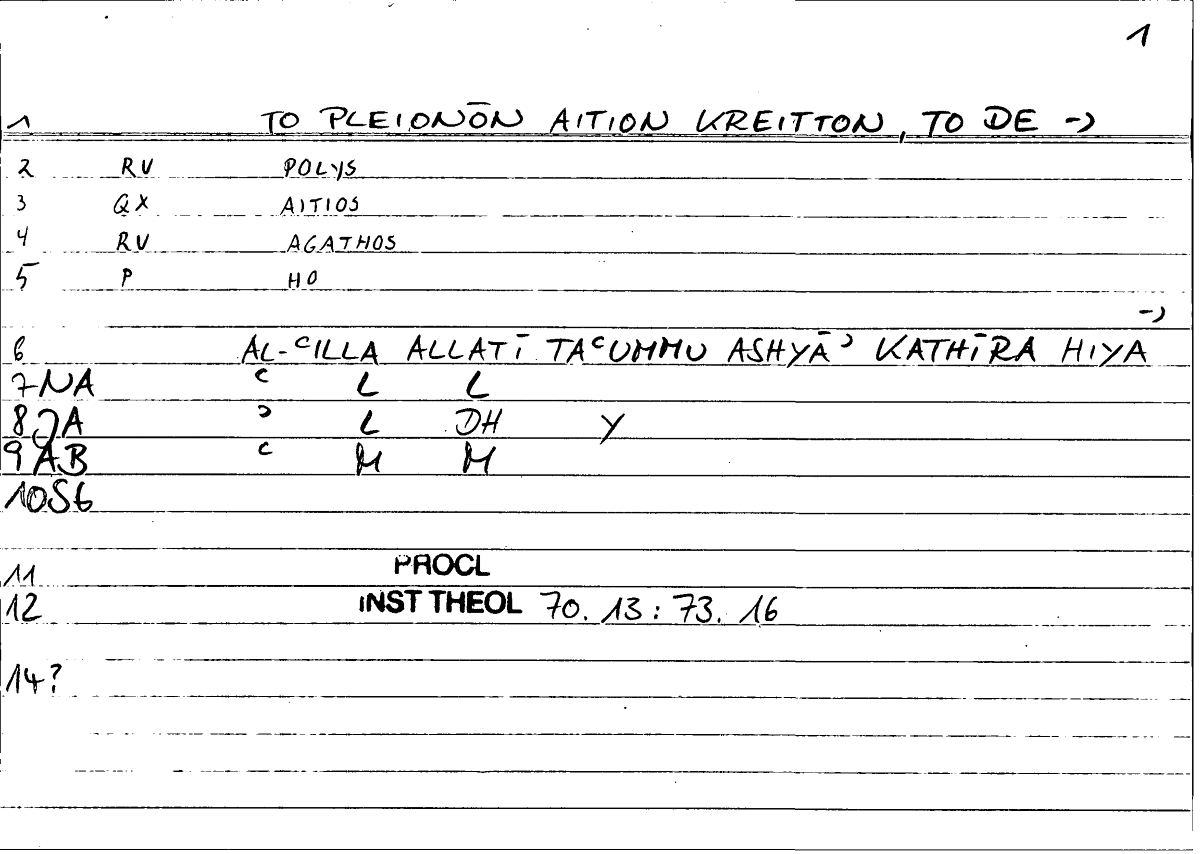 1
1 TO PLEIONŌN AITION KREITTON, TO DE ->
2 RV POLYS
3 QX AITIOS
4 RV AGATHOS
5 P HO
->
6 AL-ʿILLA ALLATĪ TAʿUMMU ASHYĀʾ KATHĪRA HIYA
7 NA ʿ L L
8 JA ʾ L DH Y
9 AB ʿ M M
10 S6
11 PROCL
12 INST THEOL 70. 13 : 73. 16
14?